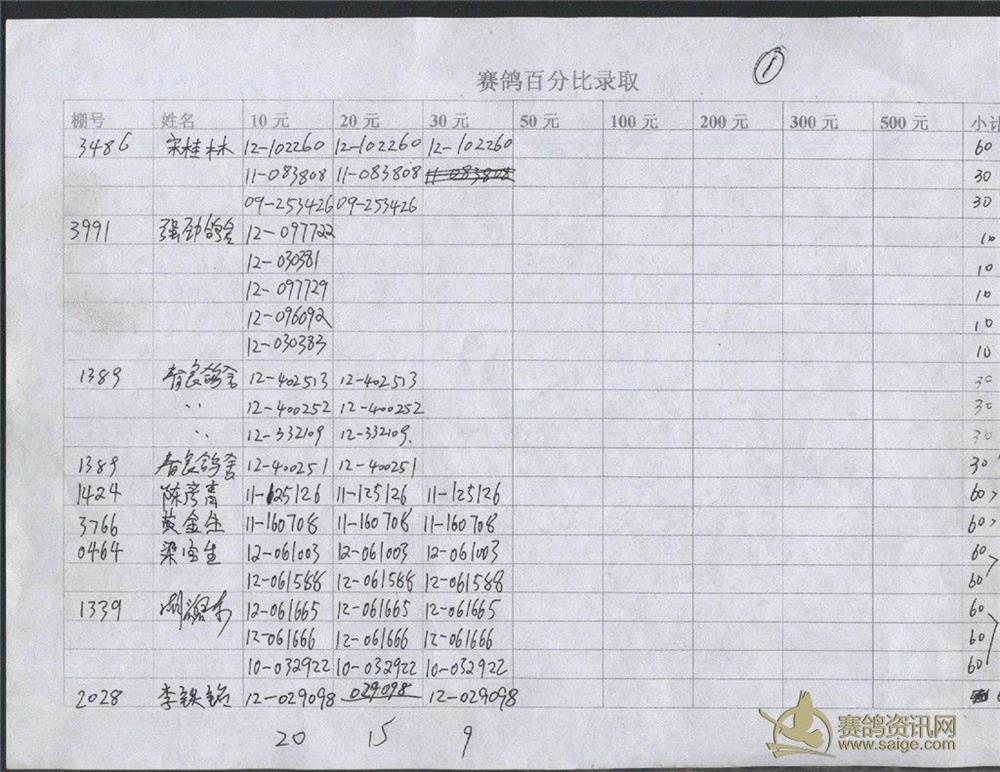 ①
赛鸽百分比录取
棚号 姓名 10 元 20 元 30 元 50 元 100 元 200 元 300 元 500 元 小计
3486 宋桂林 12-102260 12-102260 12-102260 60
11-083808 11-083808 11-083808 30
09-253426 09-253426 30
3991 强劲鸽舍 12-097722 10
12-030381 10
12-097729 10
12-096092 10
12-030383 10
1389 春良鸽舍 12-402513 12-402513 30
〃 12-400252 12-400252 30
〃 12-332109 12-332109. 30
1389 春良鸽舍 12-400251 12-400251 30
1424 陈彦青 11-125126 11-125126 11-125126 60
3766 黄金生 11-160708 11-160708 11-160708 60
0464 梁宝生 12-061003 12-061003 12-061003 60
12-061588 12-061588 12-061588 60
1339 12-061665 12-061665 12-061665 60
12-061666 12-061666 12-061666 60
10-032922 10-032922 10-032922 60
2028 李铁铭 12-029098 029098 12-029098
20 15 9
赛鸽资讯网
www.saige.com